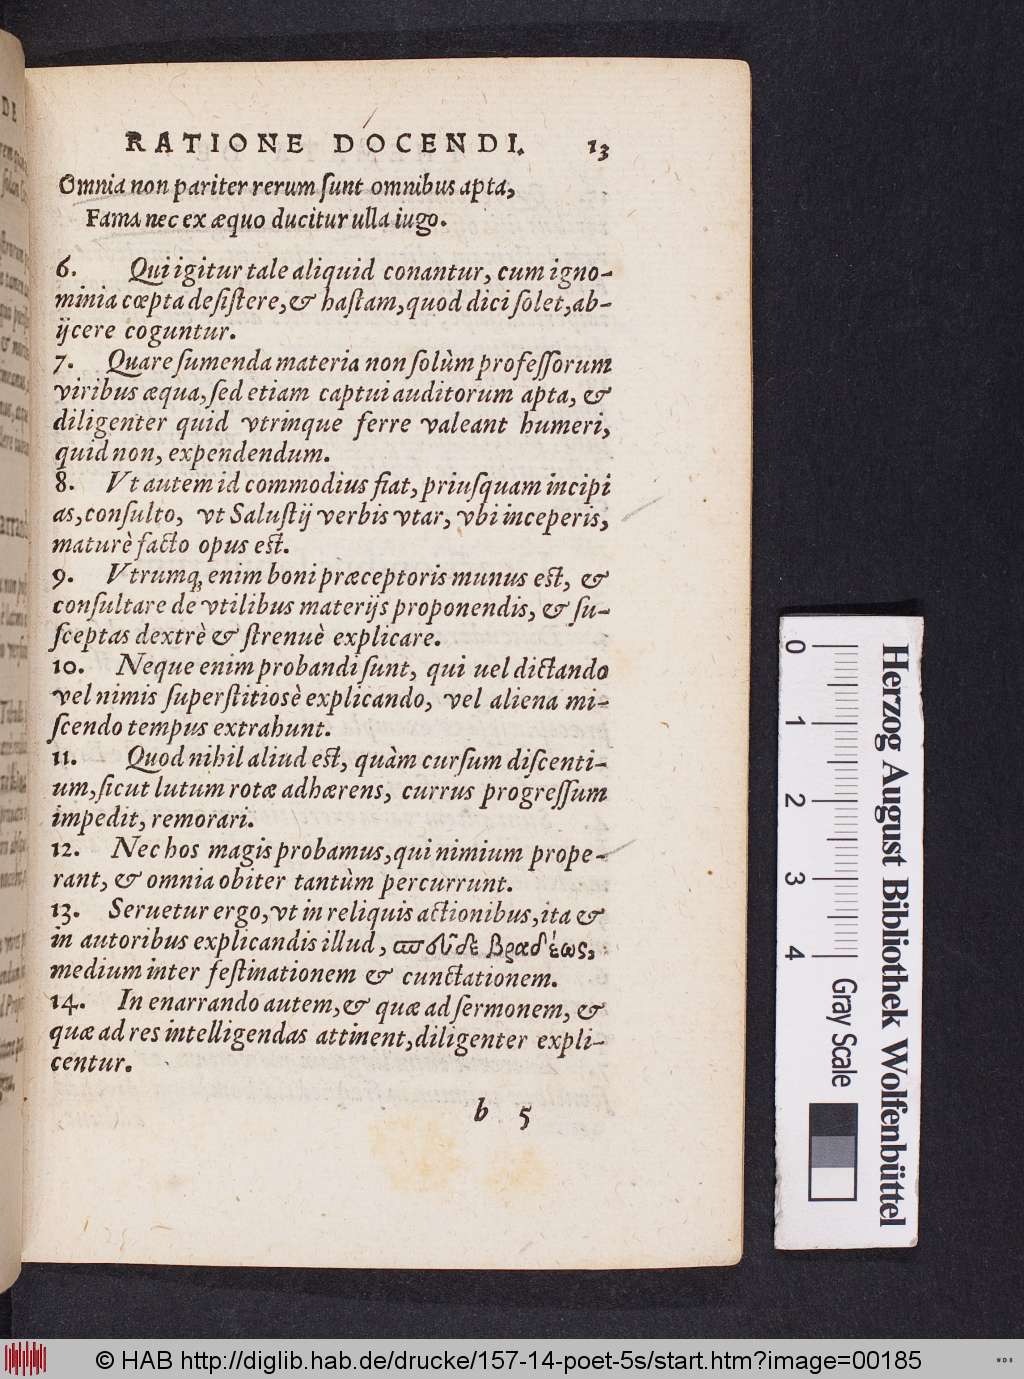 RATIONE DOCENDI. 13
Omnia non pariter rerum ſunt omnibus apta,
Fama nec ex æquo ducitur ulla iugo.
6. Qui igitur tale aliquid conantur, cum igno-
minia cœpta deſiſtere, & haſtam, quod dici ſolet, ab-
ijcere coguntur.
7. Quare ſumenda materia non ſolùm profeſſorum
viribus æqua, ſed etiam captui auditorum apta, &
diligenter quid vtrinque ferre valeant humeri,
quid non, expendendum.
8. Vt autem id commodius fiat, priuſquam incipi
as, conſulto, vt Saluſtij verbis vtar, vbi inceperis,
maturè facto opus est.
9. Vtrumq; enim boni præceptoris munus est, &
conſultare de vtilibus materijs proponendis, & ſu-
ſceptas dextrè & ſtrenuè explicare.
10. Neque enim probandi ſunt, qui uel dictando
vel nimis ſuperſtitiosè explicando, vel aliena mi-
ſcendo tempus extrahunt.
11. Quod nihil aliud est, quàm curſum diſcenti-
um, ſicut lutum rotæ adhærens, currus progreſſum
impedit, remorari.
12. Nec hos magis probamus, qui nimium prope-
rant, & omnia obiter tantùm percurrunt.
13. Seruetur ergo, vt in reliquis actionibus, ita &
in autoribus explicandis illud, σπεῦδε βραδέως,
medium inter feſtinationem & cunctationem.
14. In enarrando autem, & quæ ad ſermonem, &
quæ ad res intelligendas attinent, diligenter expli-
centur.
b 5
0 1 2 3 4
Gray Scale
Herzog August Bibliothek Wolfenbüttel
© HAB http://diglib.hab.de/drucke/157-14-poet-5s/start.htm?image=00185